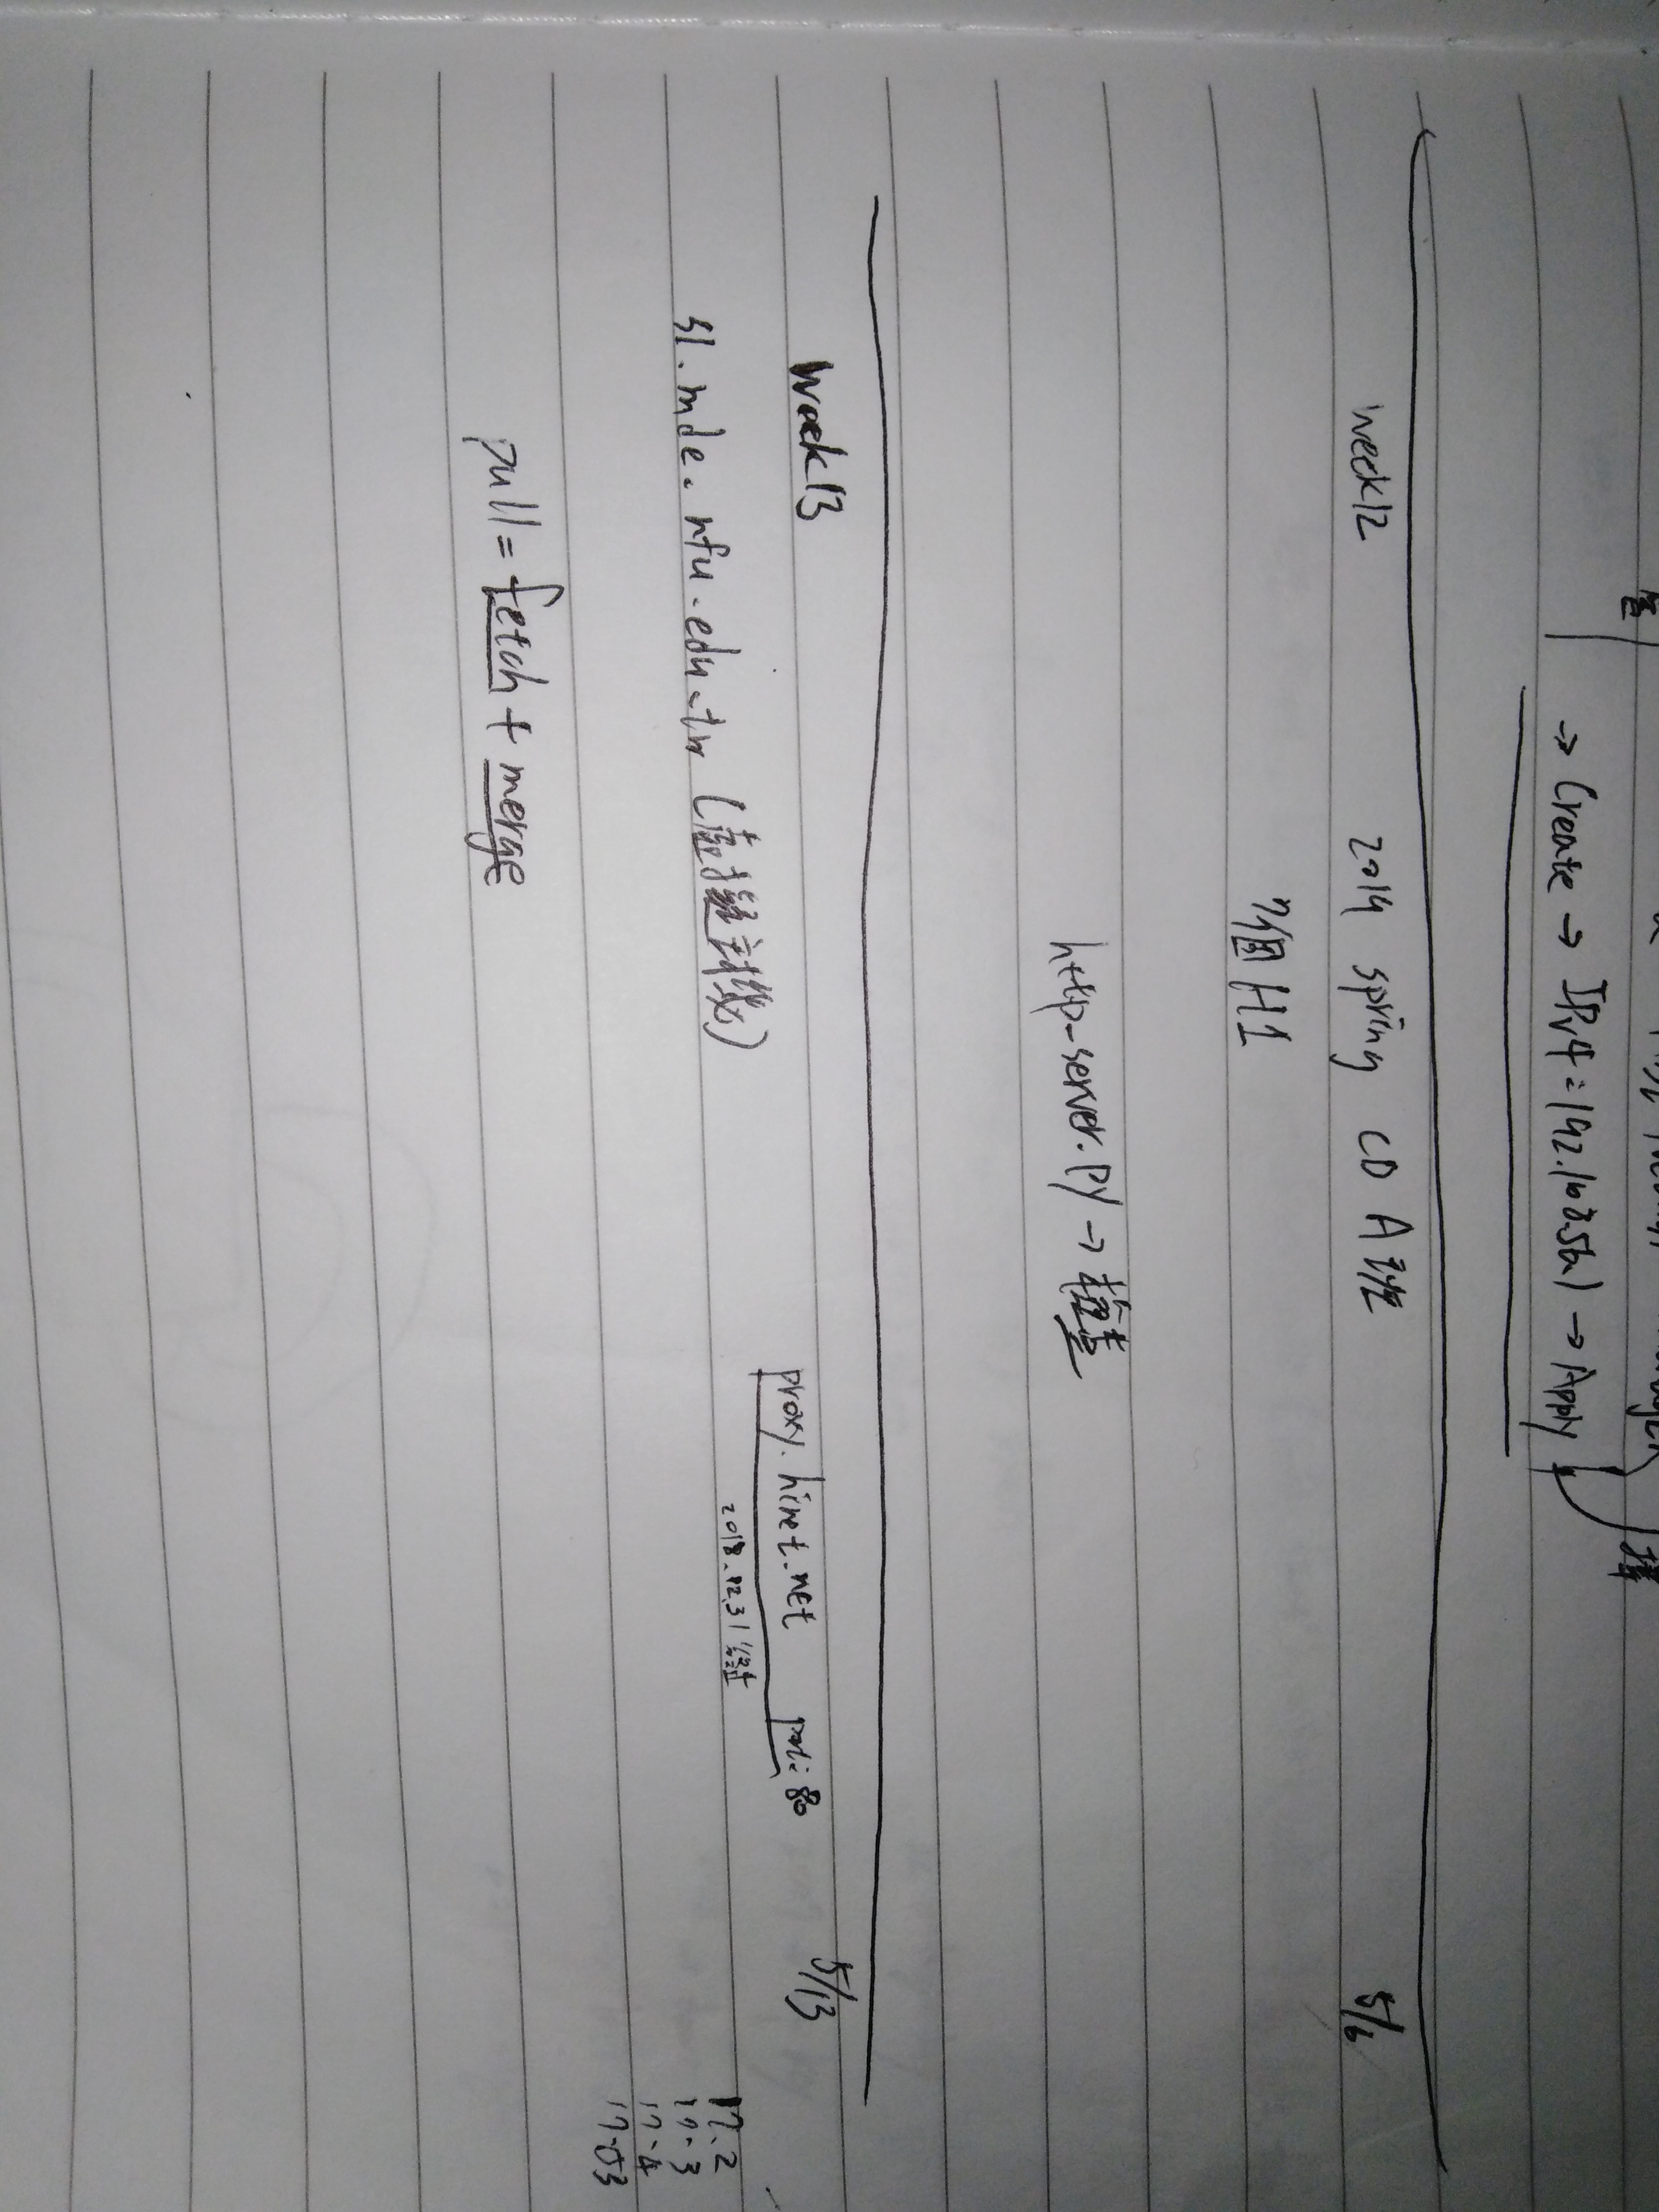 → Create → IPv4=192.168.56.1 → Apply
擇
week12 2019 spring CD A班 5/6
7個 H1
http-server.py → 檢查
week13 5/13
proxy.hinet.net port:80
2018.12.31
s1.mde.nfu.edu.tw (虛擬主機)
17.2
17-3
17-4
pull = fetch + merge